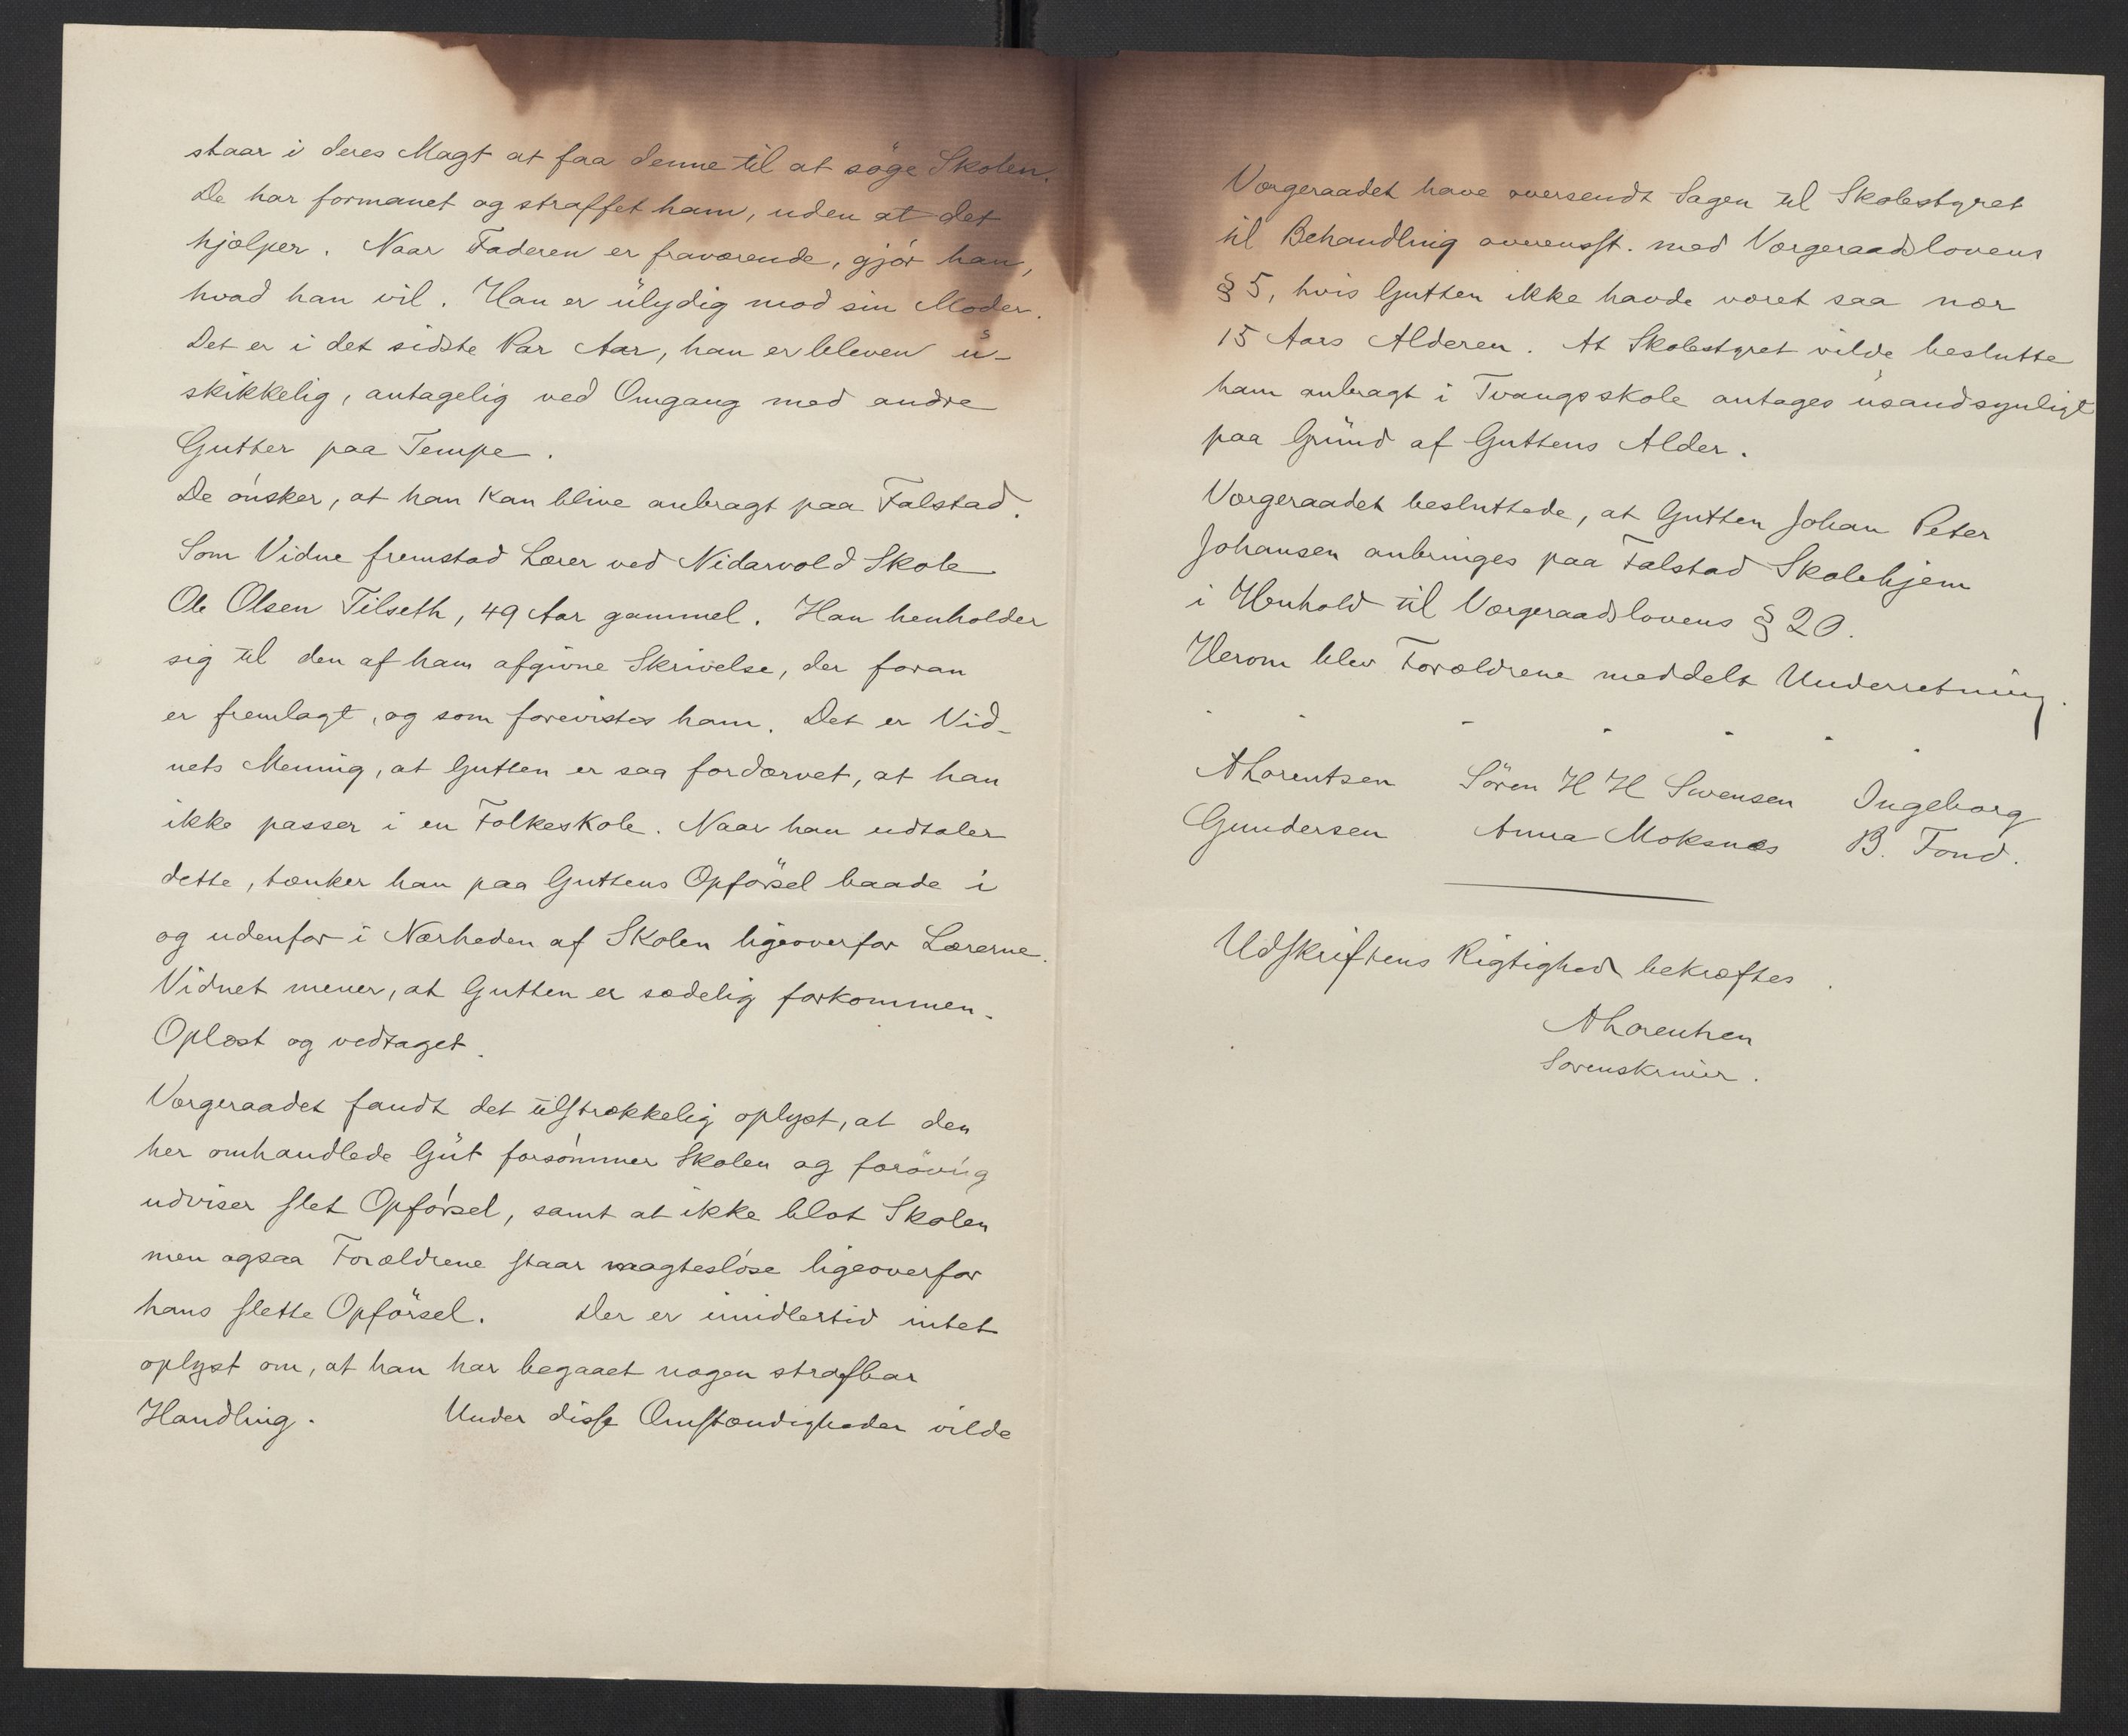 staar i deres Magt at faa denne til at søge Skolen.
De har formanet og straffet ham, uden at det
hjælper. Naar Faderen er fraværende, gjør han,
hvad han vil. Han er ulydig mod sin Moder.
Det er i det sidste Par Aar, han er bleven u-
skikkelig, antagelig ved Omgang med andre
Gutter paa Tempe.
De ønsker, at han kan blive anbragt paa Falstad.
Som Vidne fremstod Lærer ved Nidarvold Skole
Ole Olsen Tilseth, 49 Aar gammel. Han henholder
sig til den af ham afgivne Skrivelse, der foran
er fremlagt, og som forevistes ham. Det er Vid-
nets Mening, at Gutten er saa fordærvet, at han
ikke passer i en Folkeskole. Naar han udtaler
dette, tænker han paa Guttens Opførsel baade i
og udenfor i Nærheden af Skolen ligeoverfor Lærerne.
Vidnet mener, at Gutten er sædelig forkommen.
Oplæst og vedtaget.
Værgeraadet fandt det tilstrækkelig oplyst, at den
her omhandlede Gut forsømmer Skolen og forøvrig
udviser slet Opførsel, samt at ikke blot Skolen
men ogsaa Forældrene staar magtesløse ligeoverfor
hans slette Opførsel. Der er imidlertid intet
oplyst om, at han har begaaet nogen strafbar
Handling. Under disse Omstændigheder vilde
Værgeraadet have oversendt Sagen til Skolestyret
til Behandling overensst. med Værgeraadslovens
§ 5, hvis Gutten ikke havde været saa nær
15 Aars Alderen. At Skolestyret vilde beslutte
ham anbragt i Tvangsskole antages usandsynligt
paa Grund af Guttens Alder.
Værgeraadet besluttede, at Gutten Johan Peter
Johansen anbringes paa Falstad Skolehjem
i Henhold til Værgeraadslovens § 20.
Herom blev Forældrene meddelt Underretning.
A Lorentsen Søren H H Svensen Ingeborg
Gundersen Anna Moksnæs B. Fond.
Udskriftens Rigtighed bekræftes.
A Lorentsen
Sorenskriver.